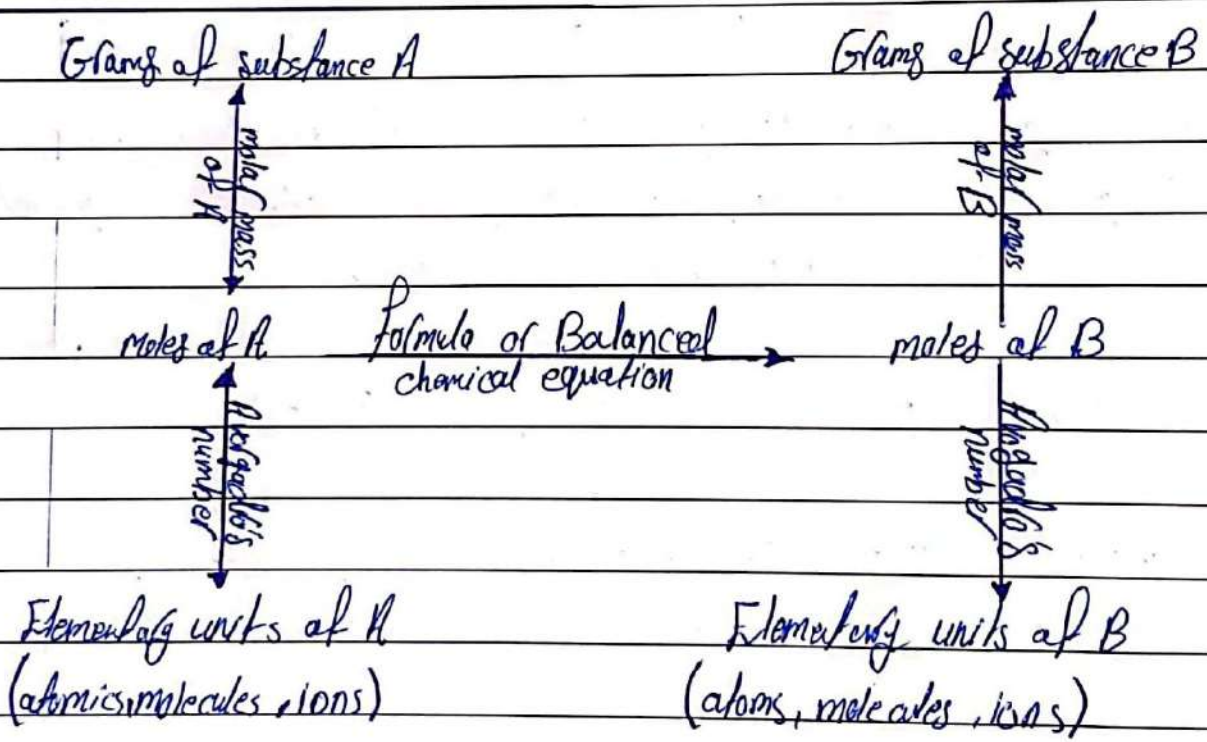 Grams of substance A
Grams of substance B
molar mass
of A
molar mass
of B
moles of A
formula or Balanced
chemical equation
moles of B
Avogadro's
number
Avogadro's
number
Elementary units of A
Elementary units of B
(atomics, molecules, ions)
(atoms, molecules, ions)